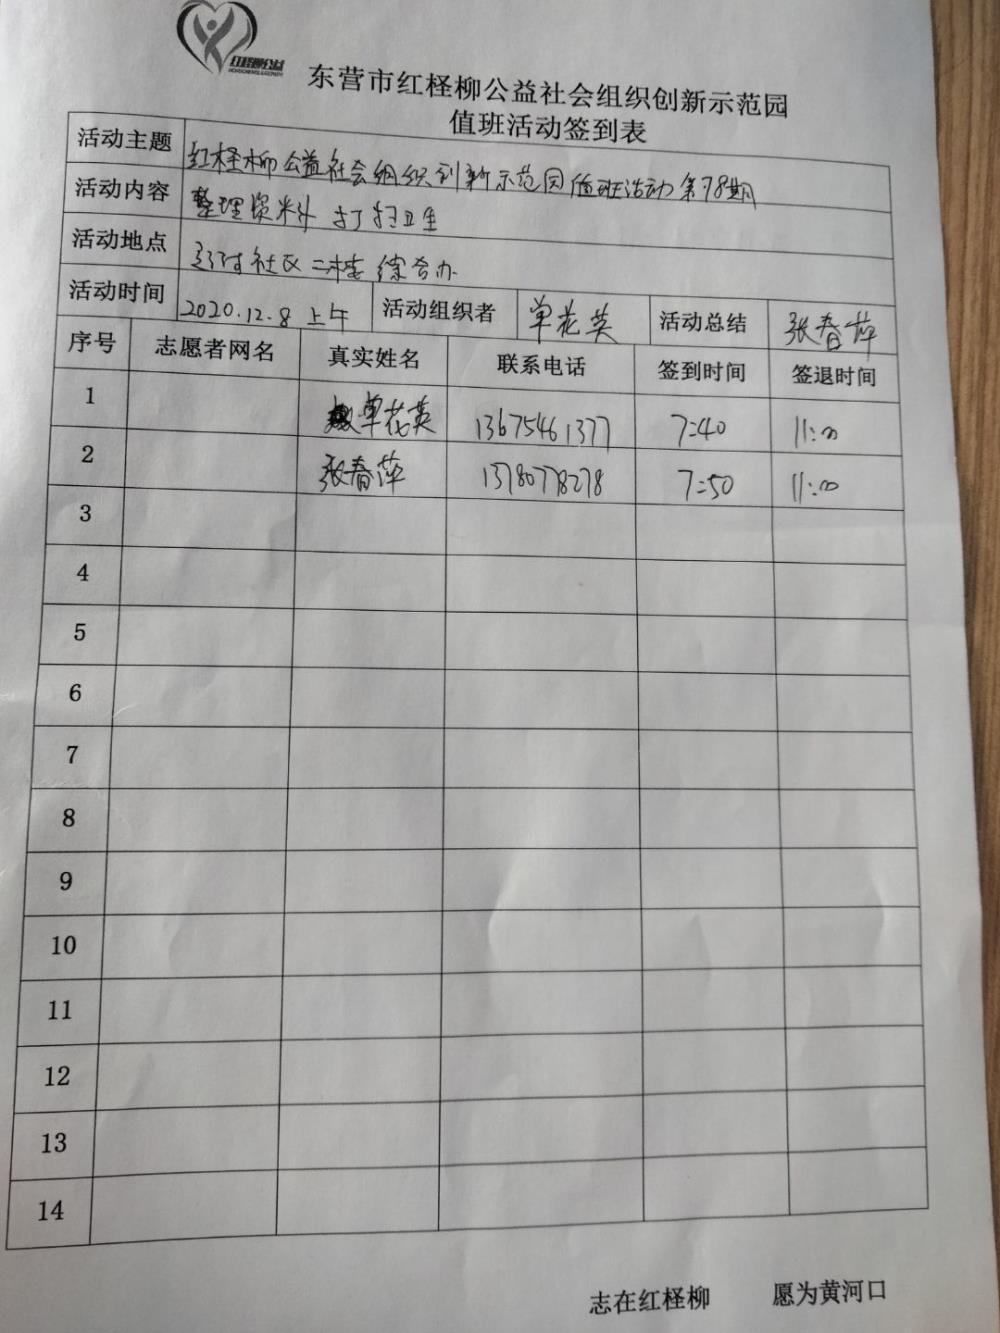 红柽柳公益
东营市红柽柳公益社会组织创新示范园
值班活动签到表
活动主题 红柽柳公益社会组织创新示范园值班活动第78期
活动内容 整理资料 打扫卫生
活动地点 社区二楼综合办
活动时间 2020.12.8 上午 活动组织者 单花英 活动总结 张春萍
序号 志愿者网名 真实姓名 联系电话 签到时间 签退时间
1 单花英 13675461377 7:40 11:00
2 张春萍 13780778278 7:50 11:00
3
4
5
6
7
8
9
10
11
12
13
14
志在红柽柳 愿为黄河口